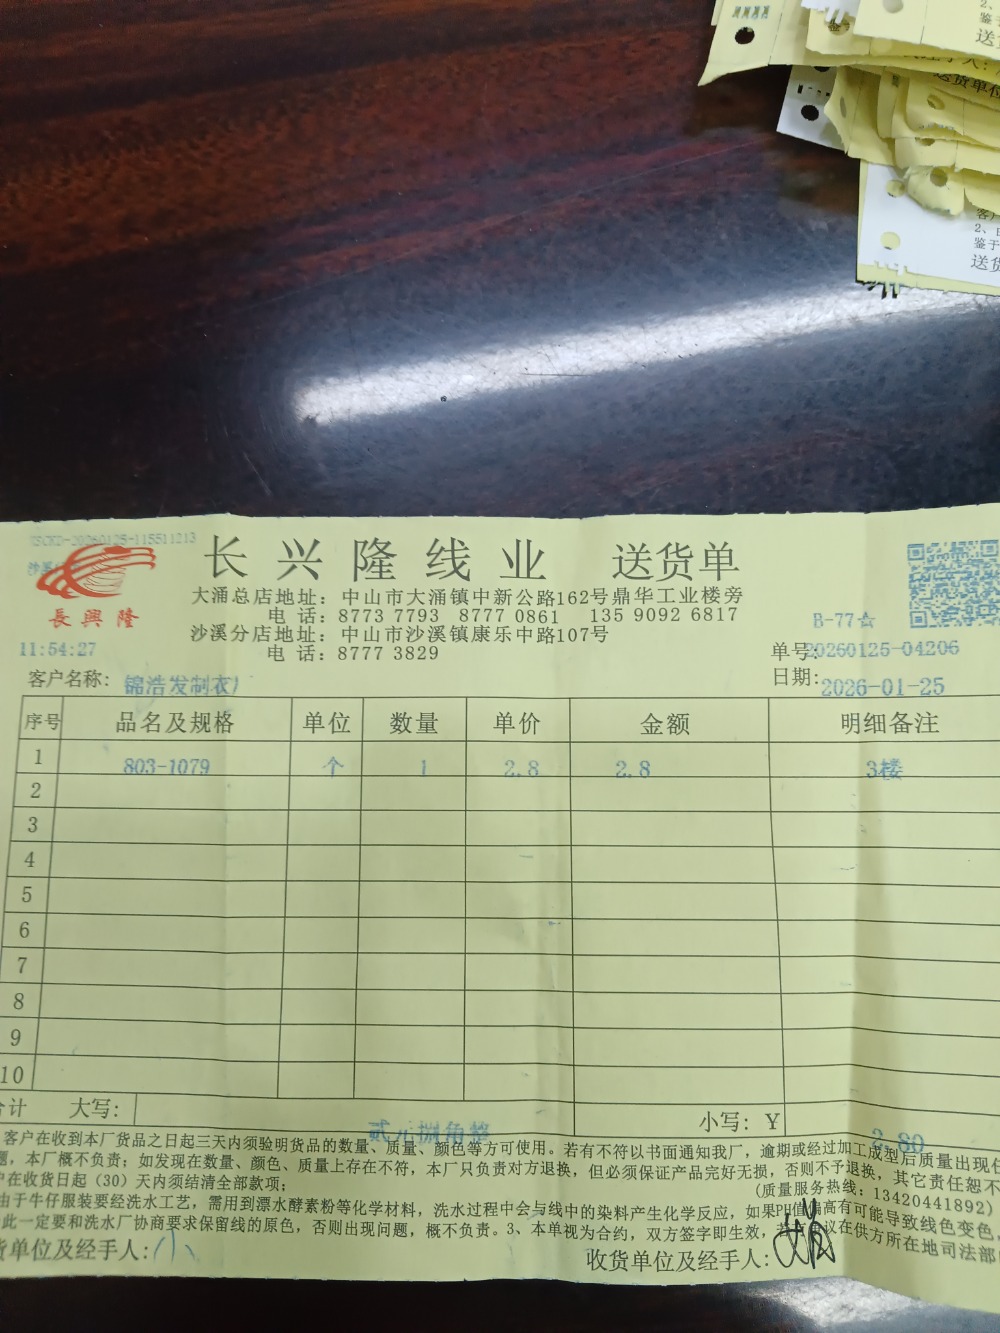 XSCKD-20260125-115511213
沙溪
長興隆
长兴隆线业 送货单
大涌总店地址：中山市大涌镇中新公路162号鼎华工业楼旁
电 话：8773 7793 8777 0861 135 9092 6817
沙溪分店地址：中山市沙溪镇康乐中路107号
电 话：8777 3829
B-77☆
11:54:27
单号:20260125-04206
客户名称: 锦浩发制衣厂
日期:2026-01-25
序号 品名及规格 单位 数量 单价 金额 明细备注
1 803-1079 个 1 2.8 2.8 3楼
2
3
4
5
6
7
8
9
10
合计 大写: 贰元捌角整 小写: ¥ 2.80
客户在收到本厂货品之日起三天内须验明货品的数量、质量、颜色等方可使用。若有不符以书面通知我厂，逾期或经过加工成型后质量出现任
题，本厂概不负责；如发现在数量、颜色、质量上存在不符，本厂只负责对方退换，但必须保证产品完好无损，否则不予退换，其它责任恕不
户在收货日起（30）天内须结清全部款项；
(质量服务热线：13420441892)
由于牛仔服装要经洗水工艺，需用到漂水酵素粉等化学材料，洗水过程中会与线中的染料产生化学反应，如果PH值偏高有可能导致线色变色，
此一定要和洗水厂协商要求保留线的原色，否则出现问题，概不负责。3、本单视为合约，双方签字即生效，若有争议在供方所在地司法部
货单位及经手人: 小
收货单位及经手人:
送货单位
客户
2、
鉴于
送货